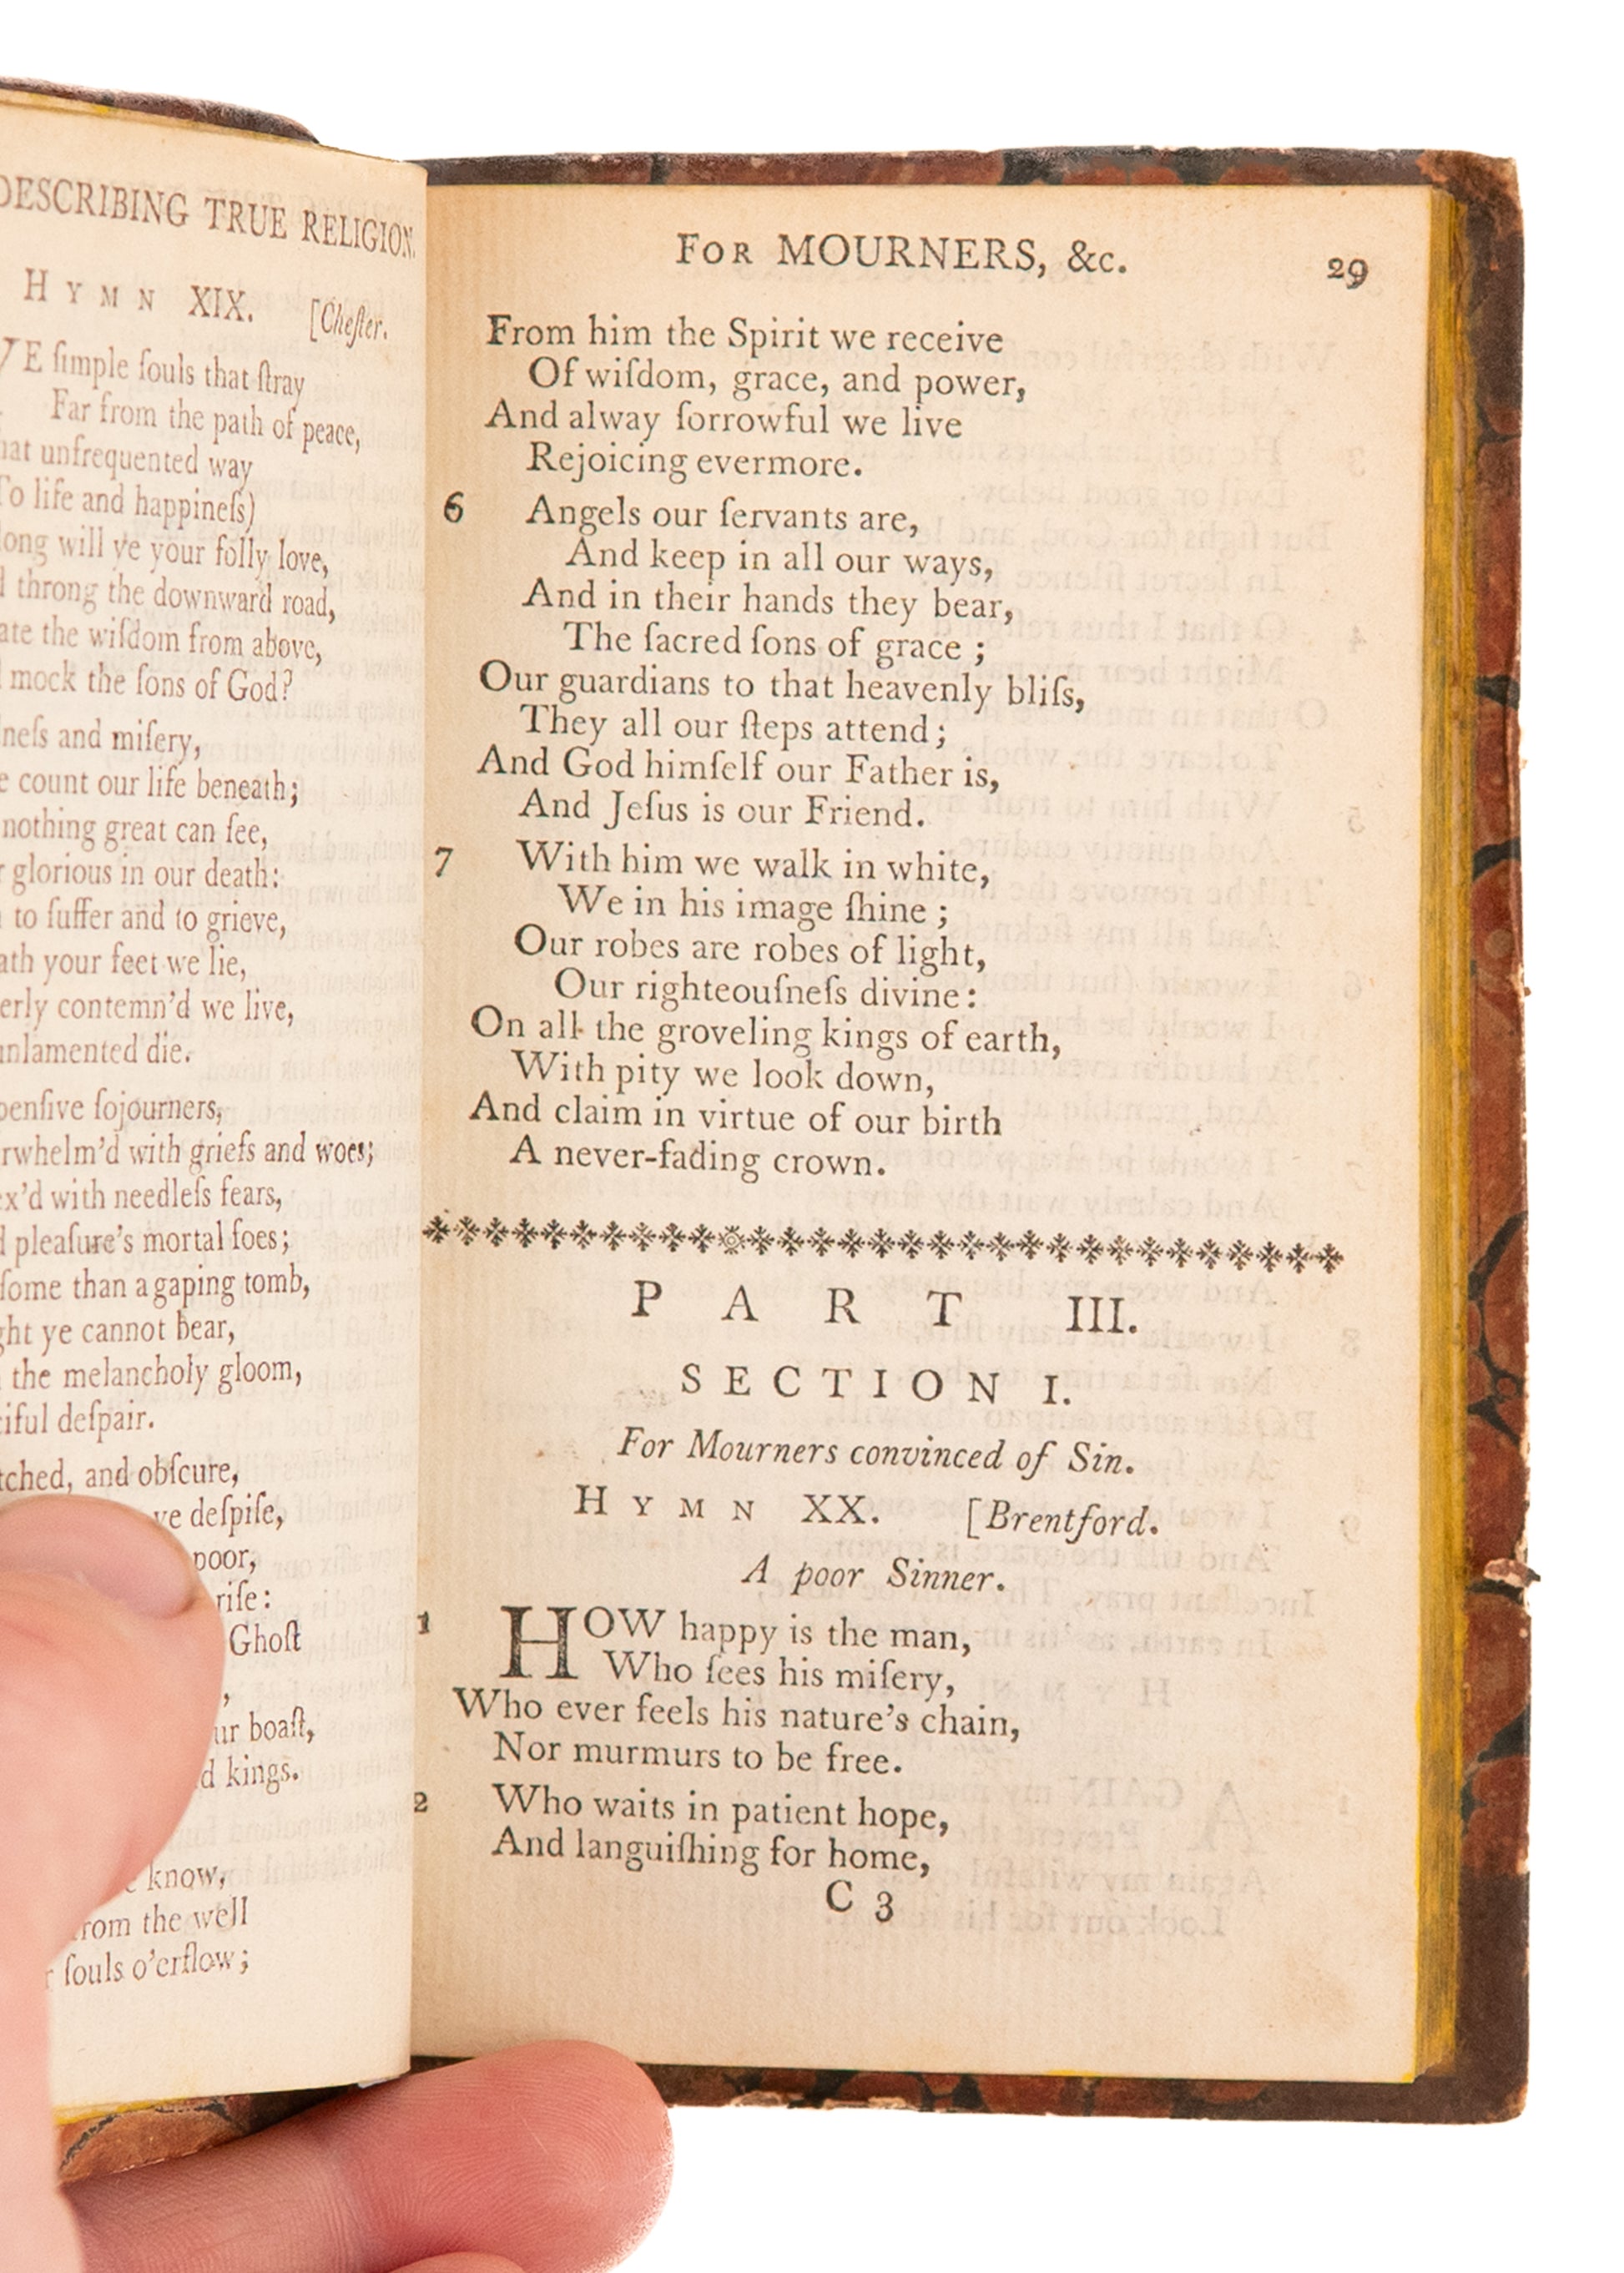 DESCRIBING TRUE RELIGION.
HYMN XIX. [Cheſter.
YE ſimple ſouls that ſtray
Far from the path of peace,
unfrequented way
To life and happineſs)
long will ye your folly love,
throng the downward road,
the wiſdom from above,
mock the ſons of God?
and miſery,
count our life beneath;
nothing great can ſee,
glorious in our death:
to ſuffer and to grieve,
your feet we lie,
contemn'd we live,
unlamented die.
penſive ſojourners,
with griefs and woes;
with needleſs fears,
pleaſure's mortal foes;
than a gaping tomb,
ye cannot bear,
the melancholy gloom,
deſpair.
and obſcure,
ye deſpiſe,
poor,
riſe:
Ghoſt
boaſt,
kings.
know,
from the well
ſouls o'erflow;
FOR MOURNERS, &c. 29
From him the Spirit we receive
Of wiſdom, grace, and power,
And alway ſorrowful we live
Rejoicing evermore.
6 Angels our ſervants are,
And keep in all our ways,
And in their hands they bear,
The ſacred ſons of grace ;
Our guardians to that heavenly bliſs,
They all our ſteps attend ;
And God himſelf our Father is,
And Jeſus is our Friend.
7 With him we walk in white,
We in his image ſhine ;
Our robes are robes of light,
Our righteouſneſs divine :
On all the groveling kings of earth,
With pity we look down,
And claim in virtue of our birth
A never-fading crown.
PART III.
SECTION I.
For Mourners convinced of Sin.
HYMN XX. [Brentford.
A poor Sinner.
1 HOW happy is the man,
Who ſees his miſery,
Who ever feels his nature's chain,
Nor murmurs to be free.
2 Who waits in patient hope,
And languiſhing for home,
C 3